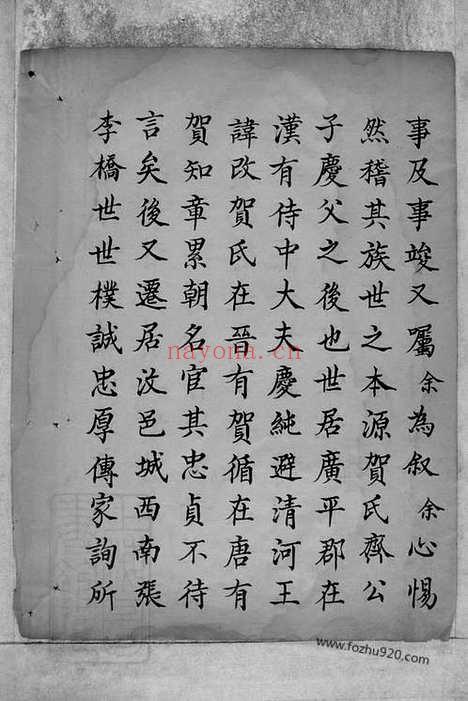 事及事竣又囑余為叙余心惕
然稽其族世之本源賀氏齊公
子慶父之後也世居廣平郡在
漢有侍中大夫慶純避清河王
諱改賀氏在晉有賀循在唐有
賀知章累朝名宦其忠貞不待
言矣後又遷居汶邑城西南張
李橋世世樸誠忠厚傳家詢所
nayona.cn
www.fozhu920.com